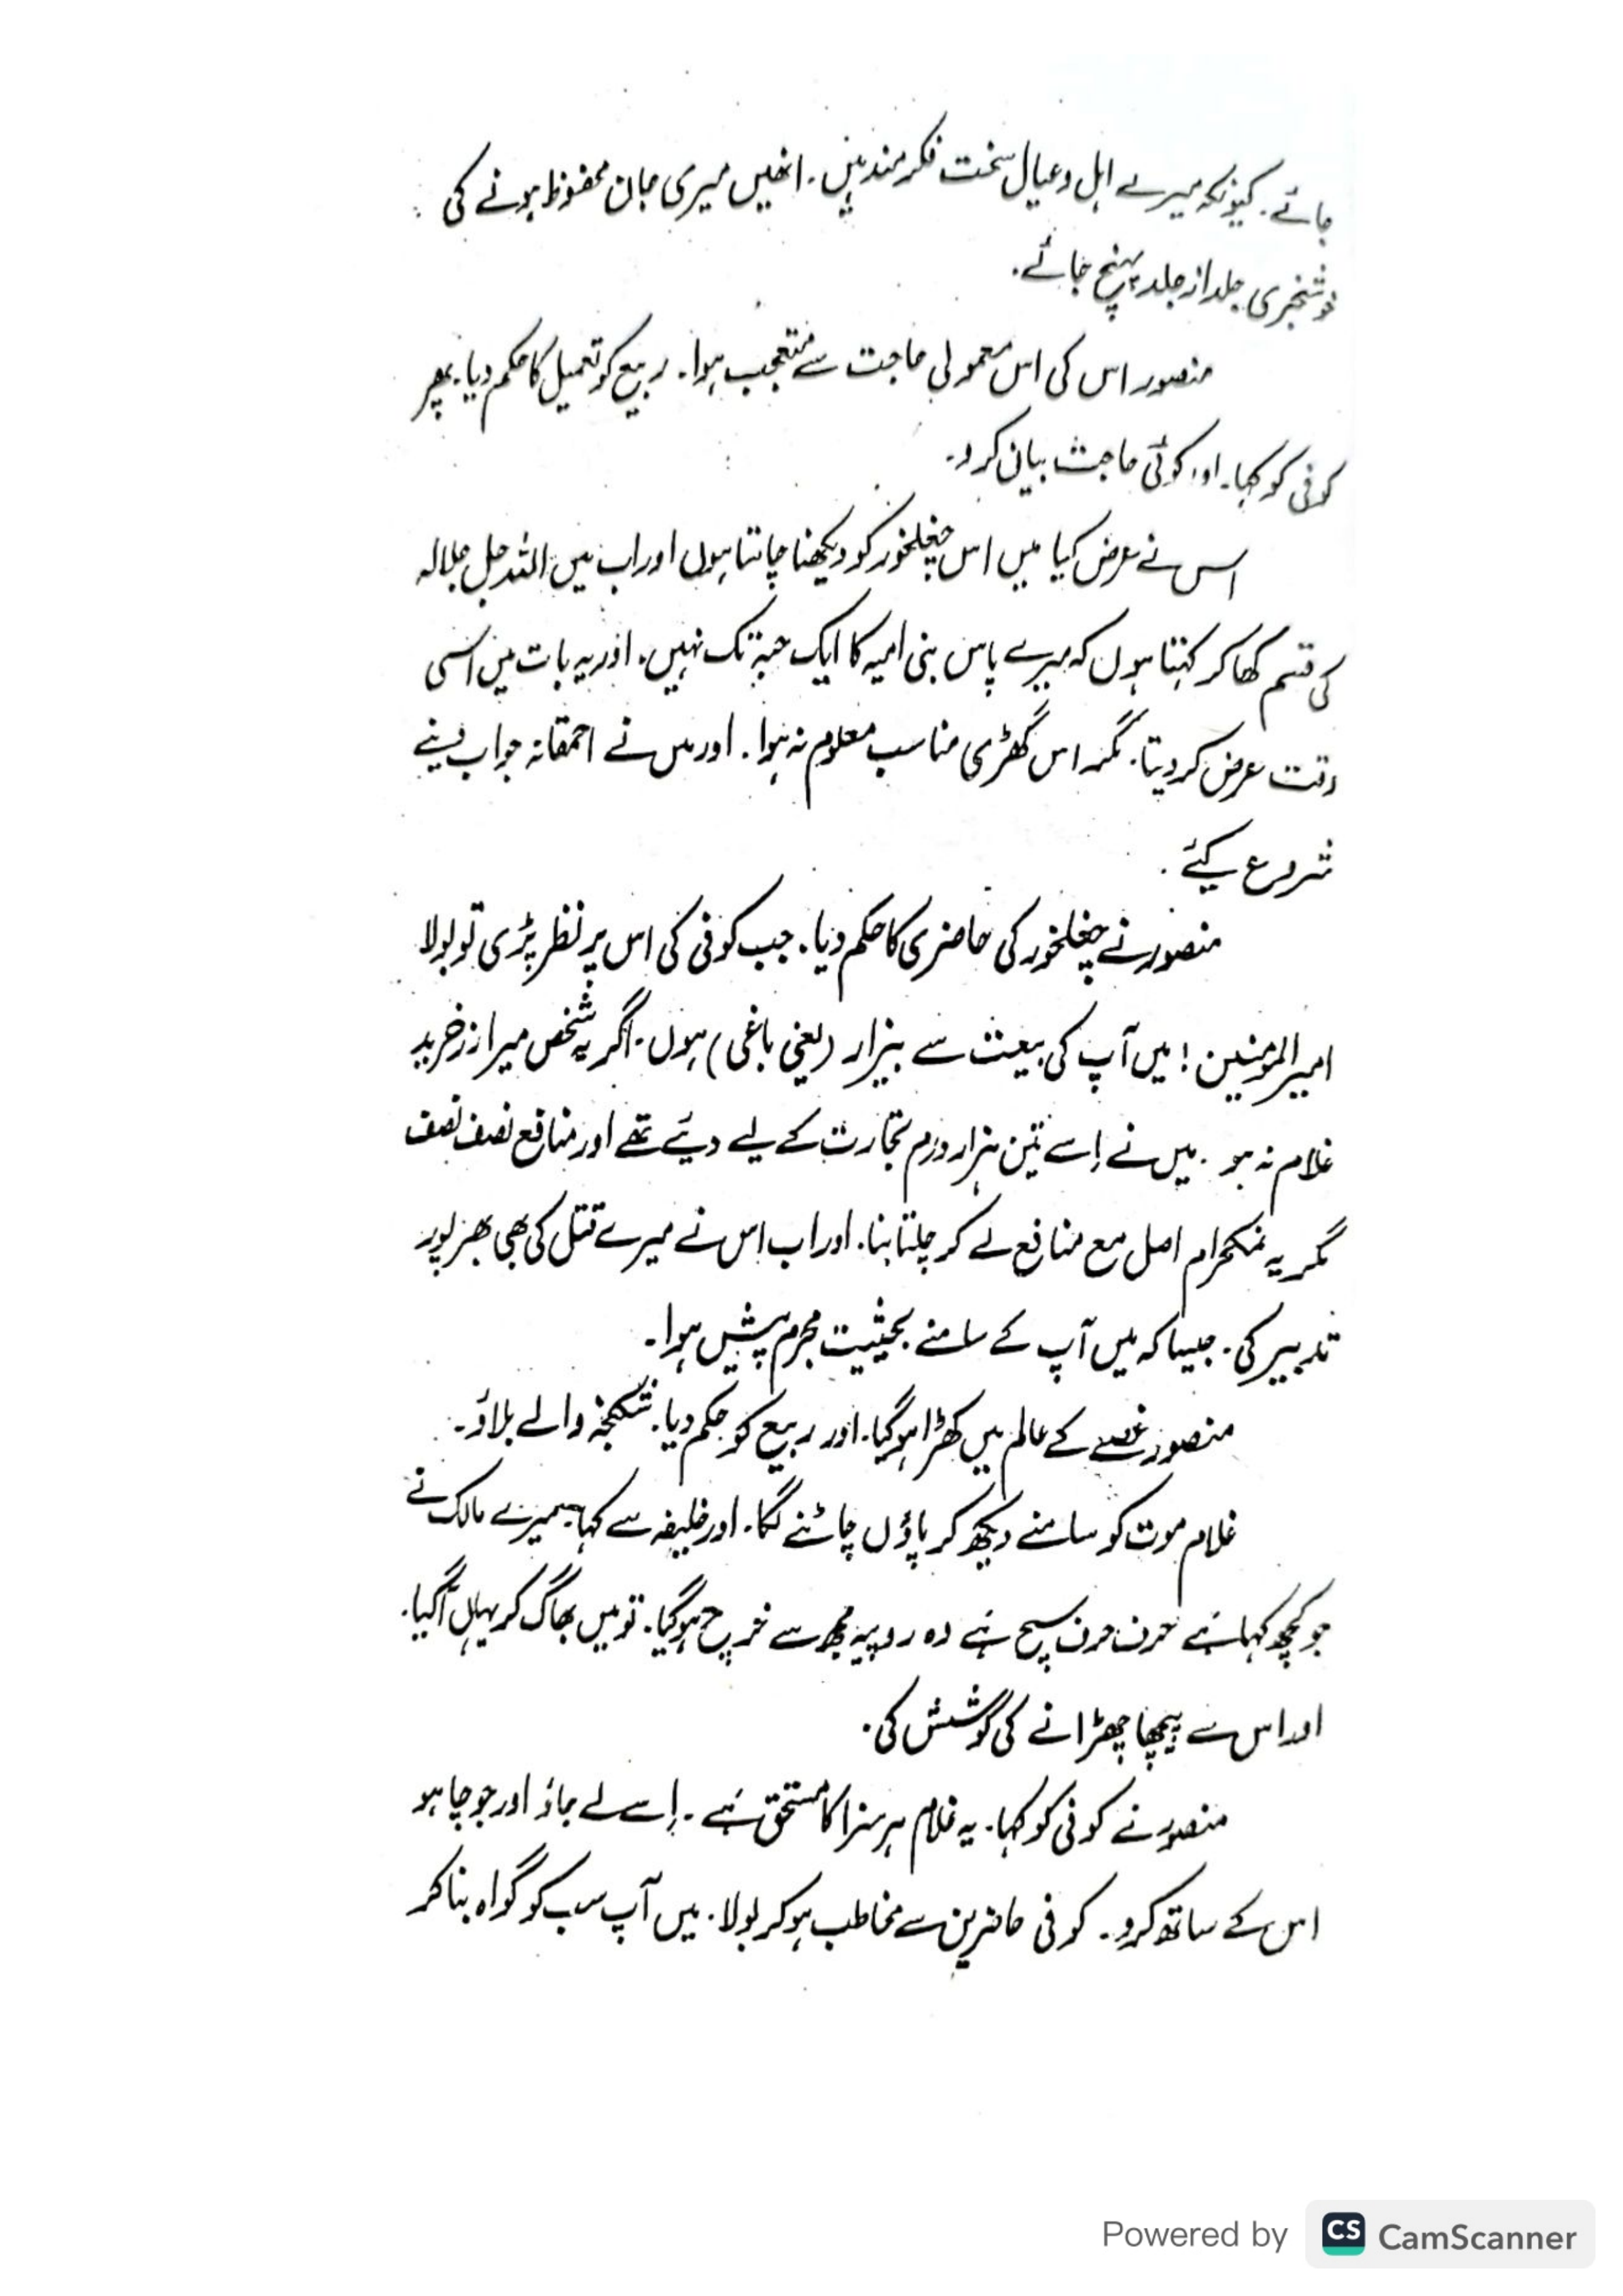 جائے۔ کیونکہ میرے اہل وعیال سخت فکرمند ہیں۔ انھیں میری جان محفوظ ہونے کی
خوشخبری جلد از جلد پہنچ جائے۔
منصور اس کی اس معمولی حاجت سے متعجب ہوا۔ ربیع کو تعمیل کا حکم دیا۔ پھر
کوفی کو کہا۔ اور کوئی حاجت بیان کرو۔
اس نے عرض کیا میں اس چغلخور کو دیکھنا چاہتا ہوں اور اب میں اللہ جل جلالہ
کی قسم کھا کر کہتا ہوں کہ میرے پاس بنی امیہ کا ایک حبّہ تک نہیں۔ اور یہ بات میں اسی
وقت عرض کر دیتا۔ مگر اس گھڑی مناسب معلوم نہ ہوا۔ اور میں نے احمقانہ جواب دینے
شروع کیئے۔
منصور نے چغلخور کی حاضری کا حکم دیا۔ جب کوفی کی اس پر نظر پڑی تو بولا
امیر المومنین! میں آپ کی بیعت سے بیزار (یعنی باغی) ہوں۔ اگر یہ شخص میرا زرخرید
غلام نہ ہو۔ میں نے اِسے تین ہزار درہم تجارت کے لیے دیئے تھے اور منافع نصف نصف
مگر یہ نمکحرام اصل مع منافع لے کر چلتا بنا۔ اور اب اس نے میرے قتل کی بھی بھرپور
تدبیر کی۔ جیسا کہ میں آپ کے سامنے بحیثیت مجرم پیش ہوا۔
منصور غصے کے عالم میں کھڑا ہو گیا۔ اور ربیع کو حکم دیا۔ شکنجہ والے بلاؤ۔
غلام موت کو سامنے دیکھ کر پاؤں چاٹنے لگا۔ اور خلیفہ سے کہا۔ میرے مالک نے
جو کچھ کہا ہے حرف حرف سچ ہے وہ روپیہ مجھ سے خرچ ہو گیا۔ تو میں بھاگ کر یہاں آگیا۔
اور اس سے پیچھا چھڑانے کی کوشش کی۔
منصور نے کوفی کو کہا۔ یہ غلام ہر سزا کا مستحق ہے۔ اِسے لے جاؤ اور جو چاہو
اس کے ساتھ کرو۔ کوفی حاضرین سے مخاطب ہو کر بولا۔ میں آپ سب کو گواہ بنا کر
Powered by CS CamScanner